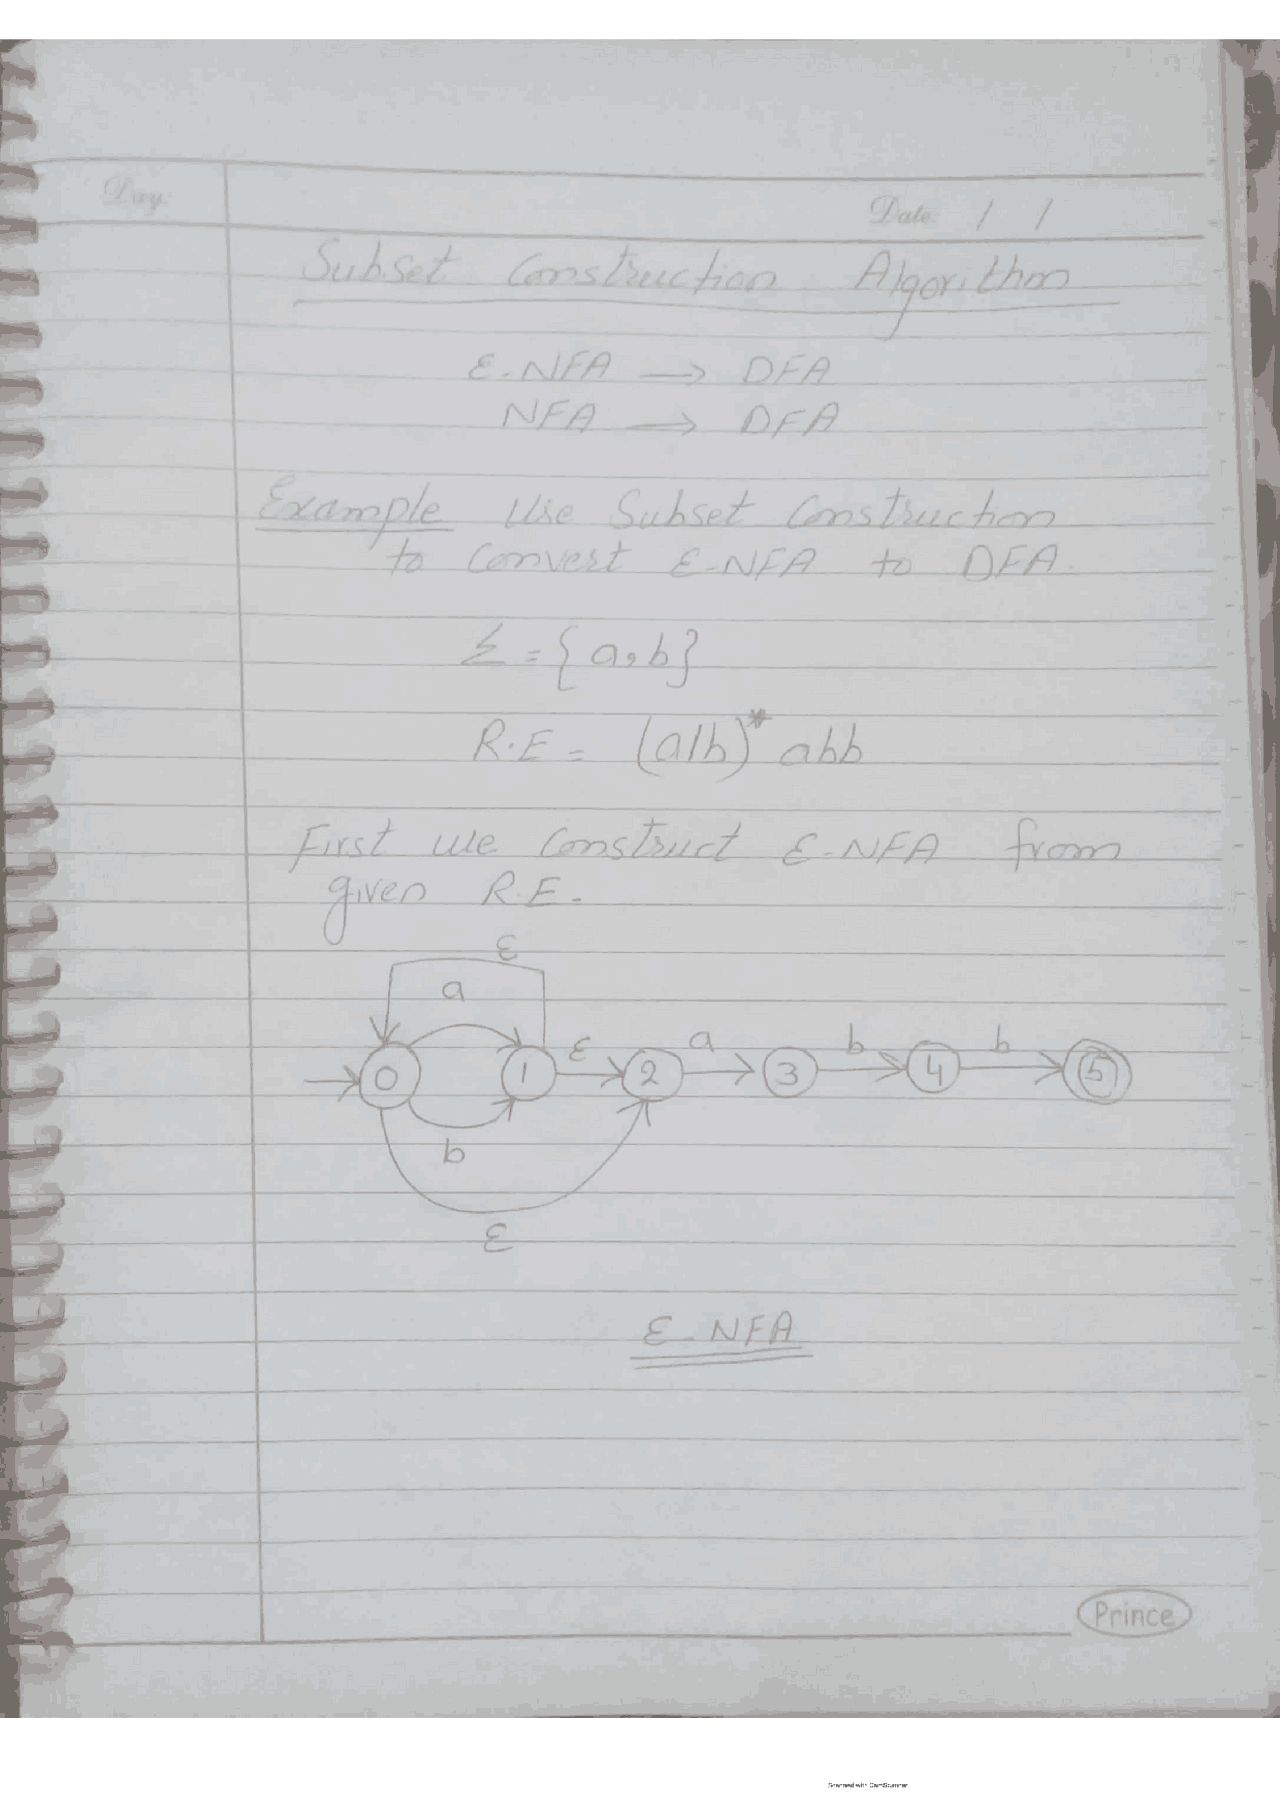 Day:
Date / /
Subset Construction Algorithm
ε-NFA → DFA
NFA → DFA
Example Use Subset Construction
to Convert ε-NFA to DFA.
Σ = {a,b}
R.E = (a|b)* abb
First we Construct ε-NFA from
given R.E.
ε
a
ε a b b
0 1 2 3 4 5
b
ε
ε-NFA
Prince
Scanned with CamScanner